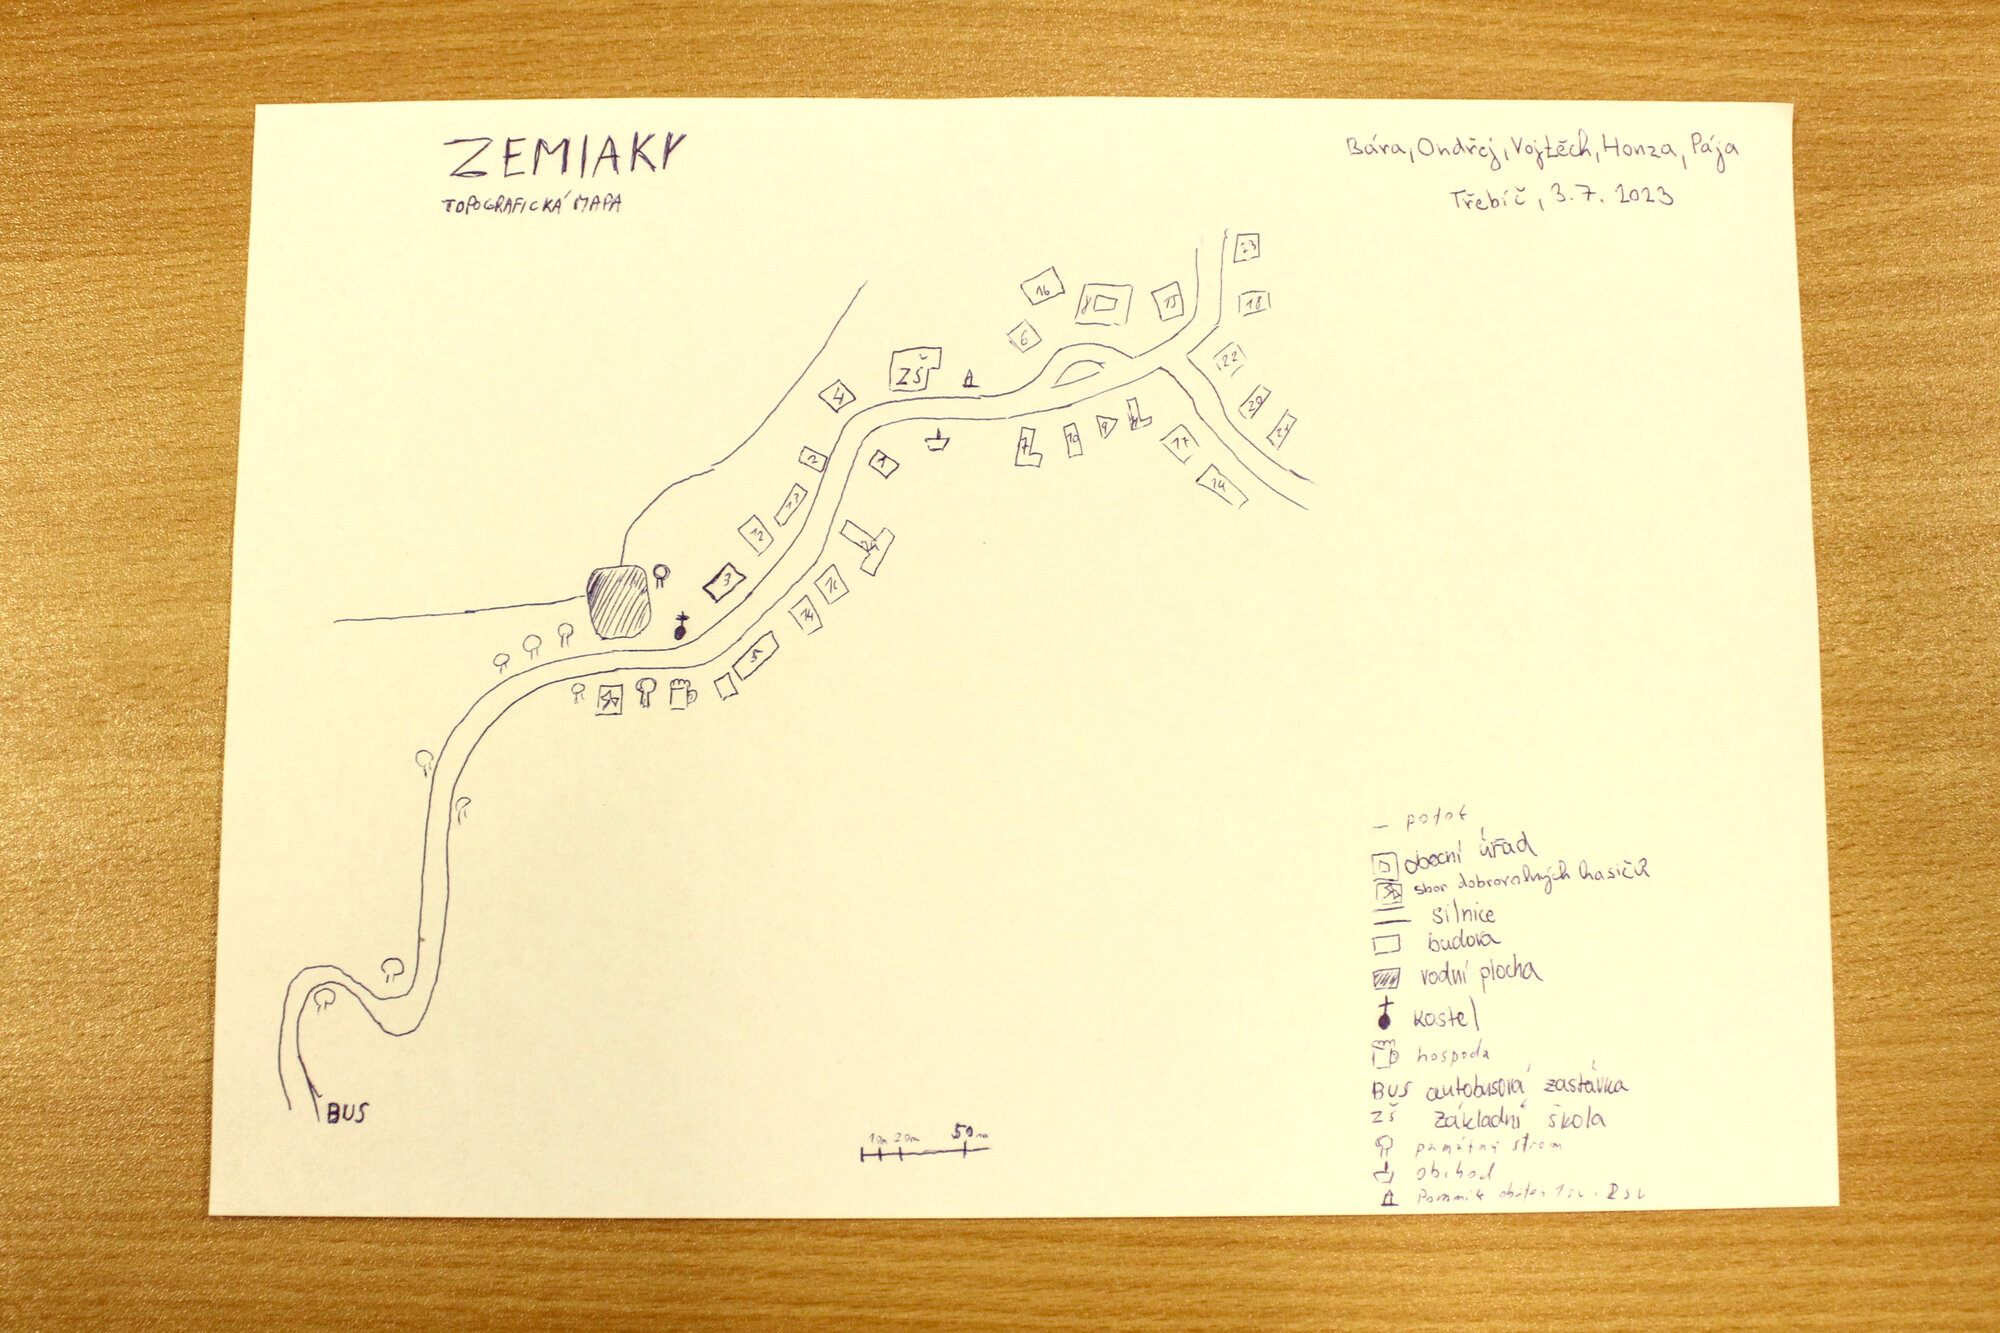 ZEMIAKY
TOPOGRAFICKÁ MAPA
Bára, Ondřej, Vojtěch, Honza, Pája
Třebíč, 3.7. 2023
23
16
8
15
18
6
22
ZŠ
4
20
21
7
10
9
17
2
1
19
13
12
24
3
14
5
BUS
10m 20m 50m
potok
obecní úřad
sbor dobrovolných hasičů
silnice
budova
vodní plocha
kostel
hospoda
BUS autobusová zastávka
ZŠ základní škola
památný strom
obchod
Pomník obětem 1sv. 2sv